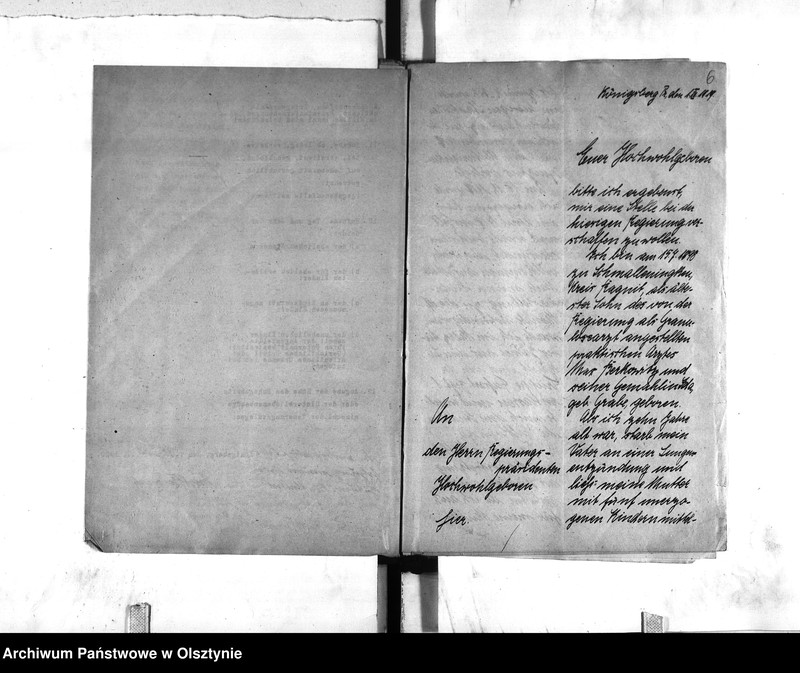 6
Königsberg Pr. den
Euer Hochwohlgeboren
bitte ich ergebenst,
mir eine Stelle bei der
hiesigen Regierung ver-
schaffen zu wollen.
Ich bin am 15.9.1898
zu Schmalleningken,
Kreis Ragnit, als älte-
ster Sohn des von der
Regierung als Granu-
losearzt angestellten
praktischen Arztes
Max Berkowitz und
seiner Gemahlin
geb. Grabe, geboren.
Als ich zehn Jahre
alt war, starb mein
Vater an einer Lungen-
entzündung und
ließ meine Mutter
mit fünf unerzo-
genen Kindern mittel-
An
den Herrn Regierungs-
präsidenten
Hochwohlgeboren
hier.
Archiwum Państwowe w Olsztynie